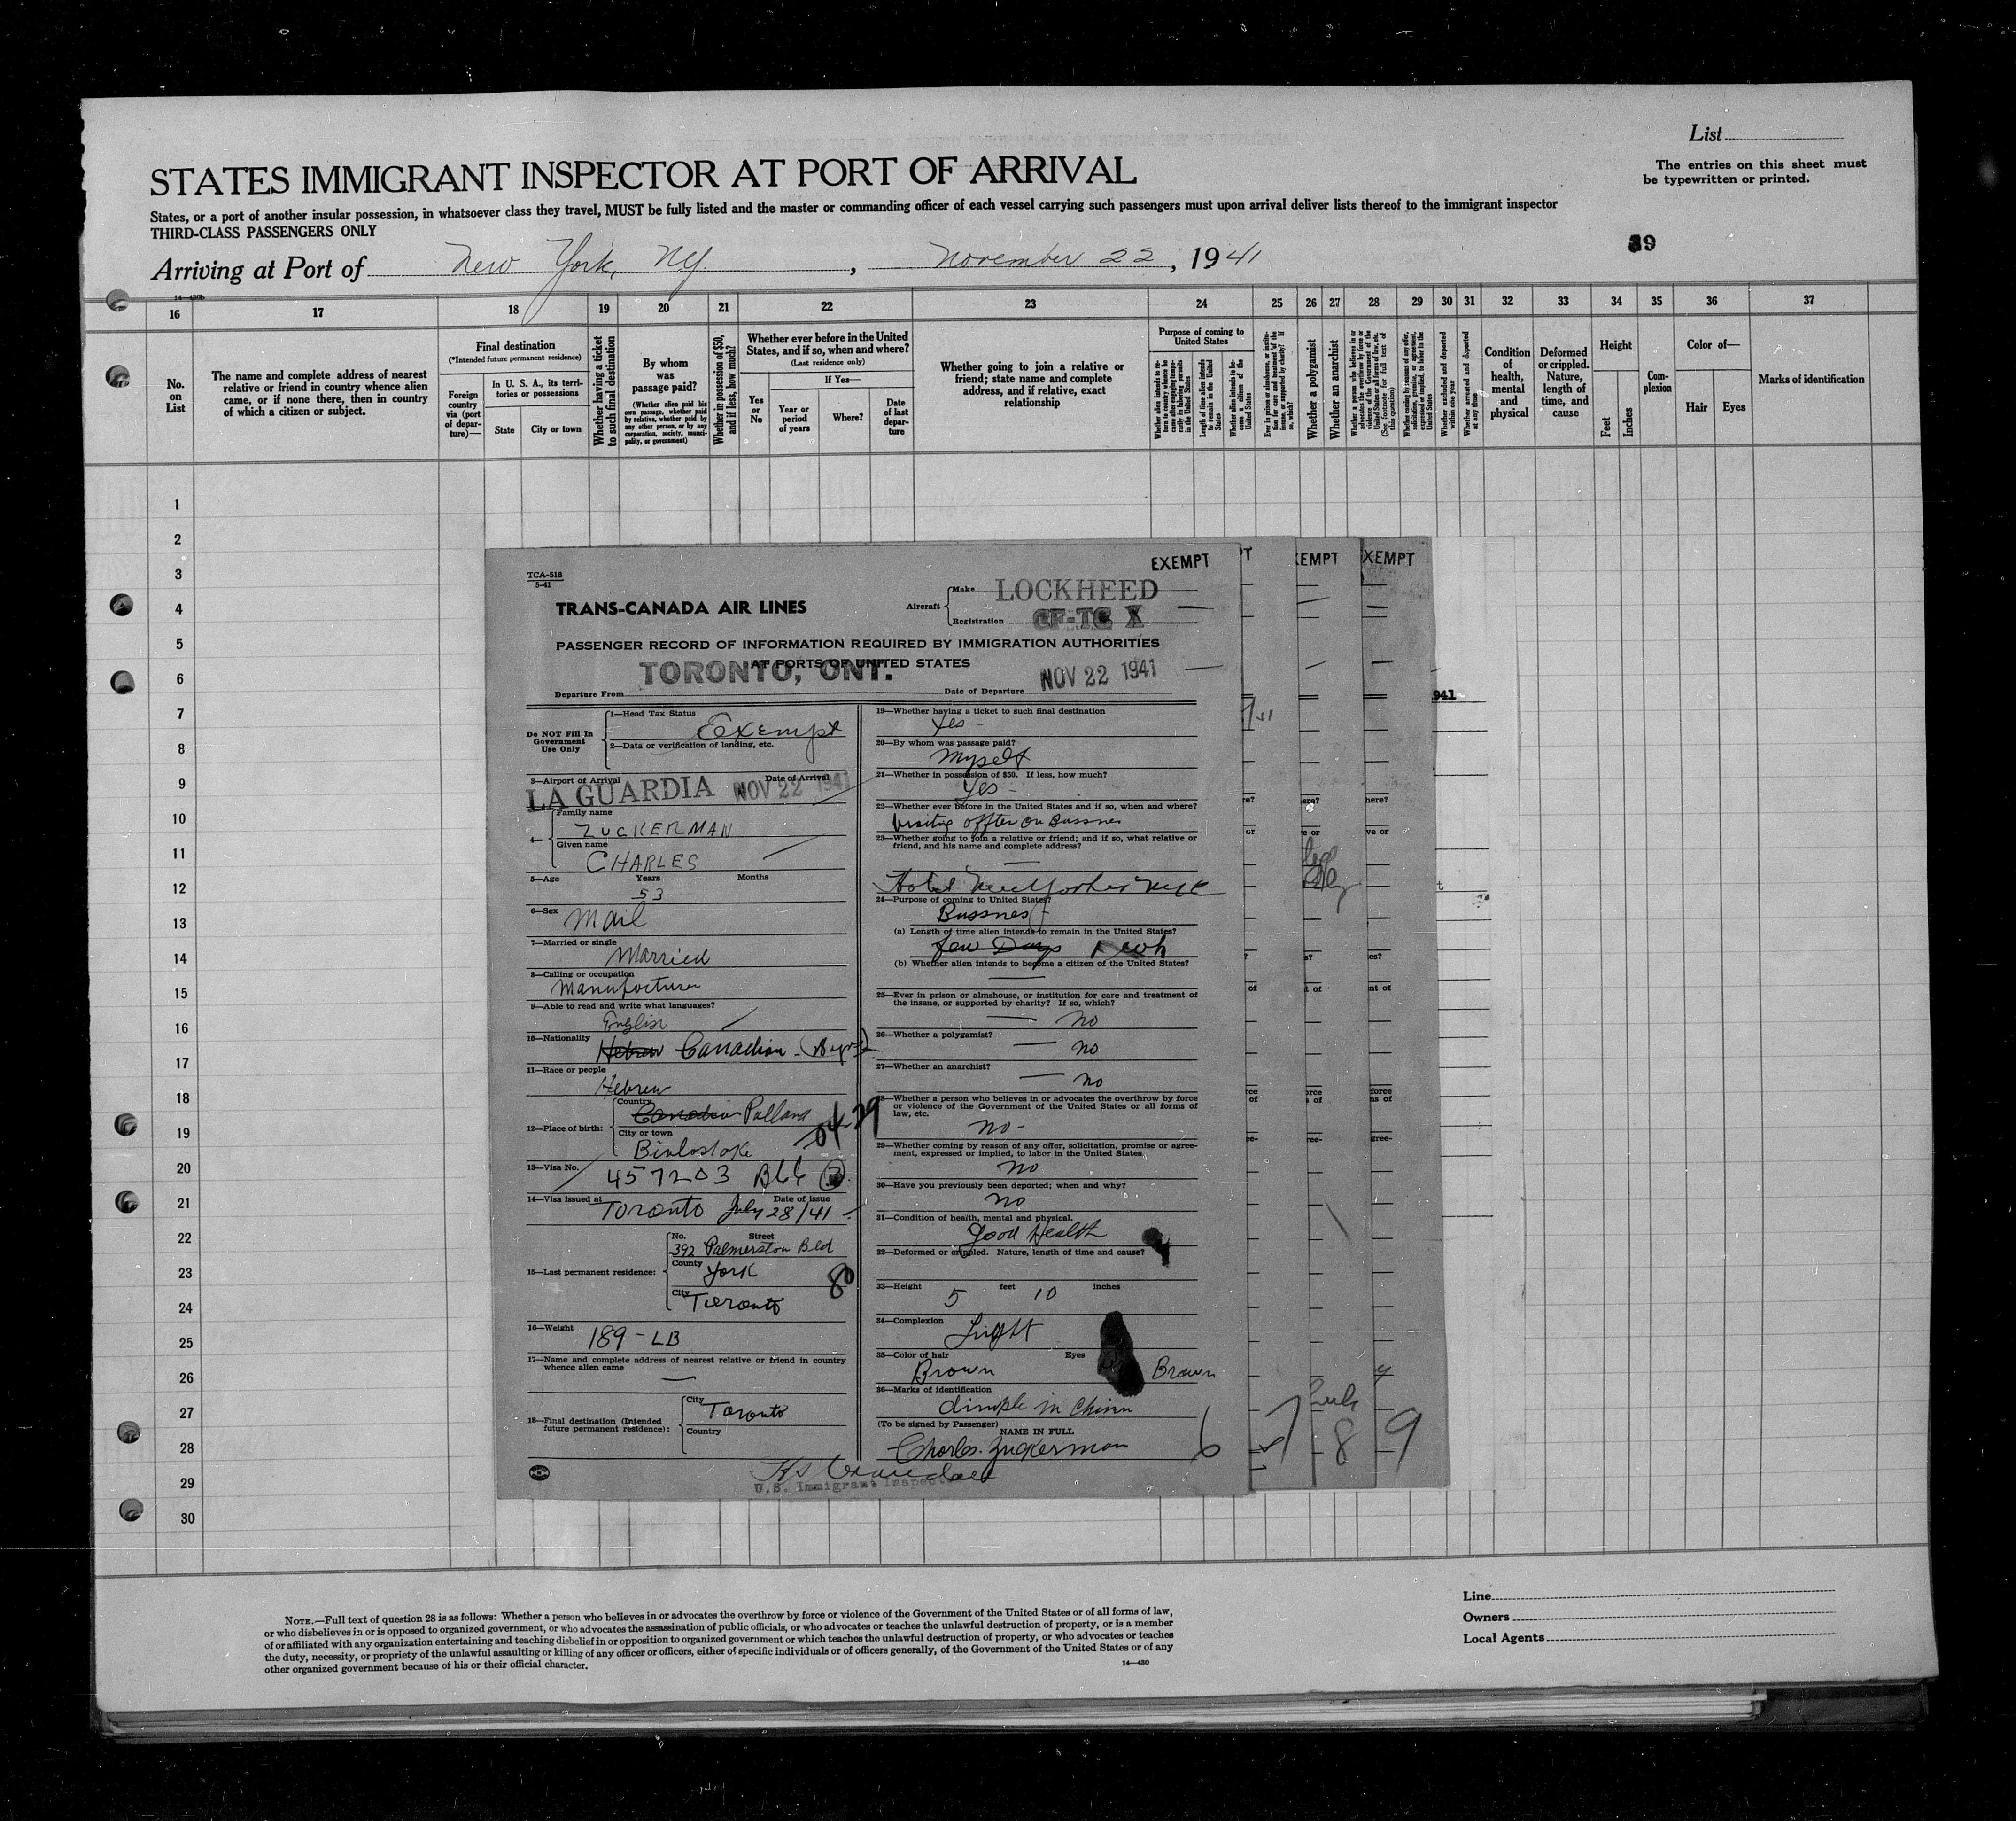 List
The entries on this sheet must
be typewritten or printed.
STATES IMMIGRANT INSPECTOR AT PORT OF ARRIVAL
States, or a port of another insular possession, in whatsoever class they travel, MUST be fully listed and the master or commanding officer of each vessel carrying such passengers must upon arrival deliver lists thereof to the immigrant inspector
THIRD-CLASS PASSENGERS ONLY
39
Arriving at Port of New York, NY. , November 22, 1941
16 17 18 19 20 21 22 23 24 25 26 27 28 29 30 31 32 33 34 35 36 37
No. on List
The name and complete address of nearest
relative or friend in country whence alien
came, or if none there, then in country
of which a citizen or subject.
Final destination
(*Intended future permanent residence)
Foreign country via (port of departure)—
In U. S. A., its territories or possessions
State
City or town
Whether having a ticket to such final destination
By whom was passage paid?
(Whether alien paid his own passage, whether paid by relative, whether paid by any other person, or by any corporation, society, municipality, or government)
Whether in possession of $50, and if less, how much?
Whether ever before in the United
States, and if so, when and where?
(Last residence only)
Yes or No
If Yes—
Year or period of years
Where?
Date of last departure
Whether going to join a relative or
friend; state name and complete
address, and if relative, exact
relationship
Purpose of coming to United States
Whether alien intends to return to country whence he came after engaging temporarily in laboring pursuits in the United States
Length of time alien intends to remain in the United States
Whether alien intends to become a citizen of the United States
Whether a polygamist
Whether an anarchist
Whether excluded and deported within one year
Whether arrested and deported at any time
Condition of health, mental and physical
Deformed or crippled. Nature, length of time, and cause
Height
Feet
Inches
Complexion
Color of—
Hair
Eyes
Marks of identification
1
2
3
4
5
6
7
8
9
10
11
12
13
14
15
16
17
18
19
20
21
22
23
24
25
26
27
28
29
30
TCA-518
5-41
EXEMPT
TRANS-CANADA AIR LINES
Aircraft
Make LOCKHEED
Registration CF-TC X
PASSENGER RECORD OF INFORMATION REQUIRED BY IMMIGRATION AUTHORITIES
AT PORTS OF UNITED STATES
Departure From TORONTO, ONT.
Date of Departure NOV 22 1941
Do NOT Fill In
Government
Use Only
1—Head Tax Status
Exempt
2—Data or verification of landing, etc.
3—Airport of Arrival Date of Arrival
LA GUARDIA NOV 22 1941
4—
Family name
ZUCKERMAN
Given name
CHARLES
5—Age Years Months
53
6—Sex
Mail
7—Married or single
Married
8—Calling or occupation
Manufacturer
9—Able to read and write what languages?
English
10—Nationality
Hebrew Canadian
11—Race or people
Hebrew
12—Place of birth:
Country
Canadian Polland
City or town
Bialostoke
04-29
13—Visa No.
457203
14—Visa issued at Date of issue
Toronto July 28/41
15—Last permanent residence:
No. Street
392 Palmerston Bld
County
York
City
Toronto
80
16—Weight
189-LB
17—Name and complete address of nearest relative or friend in country
whence alien came
—
18—Final destination (Intended
future permanent residence):
City
Toronto
Country
19—Whether having a ticket to such final destination
Yes -
20—By whom was passage paid?
Myself
21—Whether in possession of $50. If less, how much?
Yes -
22—Whether ever before in the United States and if so, when and where?
Visiting offten on Bussnes
23—Whether going to join a relative or friend; and if so, what relative or
friend, and his name and complete address?
—
Hotel New Yorker NYC
24—Purpose of coming to United States?
Bussnes
(a) Length of time alien intends to remain in the United States?
few Days 1 wk
(b) Whether alien intends to become a citizen of the United States?
—
25—Ever in prison or almshouse, or institution for care and treatment of
the insane, or supported by charity? If so, which?
— no
26—Whether a polygamist?
— no
27—Whether an anarchist?
— no
28—Whether a person who believes in or advocates the overthrow by force
or violence of the Government of the United States or all forms of
law, etc.
no-
29—Whether coming by reason of any offer, solicitation, promise or agree-
ment, expressed or implied, to labor in the United States.
no
30—Have you previously been deported; when and why?
no
31—Condition of health, mental and physical.
good Health
32—Deformed or crippled. Nature, length of time and cause?
33—Height feet inches
5 10
34—Complexion
Light
35—Color of hair Eyes
Brown Brown
36—Marks of identification
dimple in Chinn
(To be signed by Passenger) NAME IN FULL
Charles Zuckerman
U.S. Immigrant Inspector
6 7 8 9
EXEMPT
EXEMPT
941
NOTE.—Full text of question 28 is as follows: Whether a person who believes in or advocates the overthrow by force or violence of the Government of the United States or of all forms of law,
or who disbelieves in or is opposed to organized government, or who advocates the assassination of public officials, or who advocates or teaches the unlawful destruction of property, or is a member
of or affiliated with any organization entertaining and teaching disbelief in or opposition to organized government or which teaches the unlawful destruction of property, or who advocates or teaches
the duty, necessity, or propriety of the unlawful assaulting or killing of any officer or officers, either of specific individuals or of officers generally, of the Government of the United States or of any
other organized government because of his or their official character.
14—430
Line
Owners
Local Agents